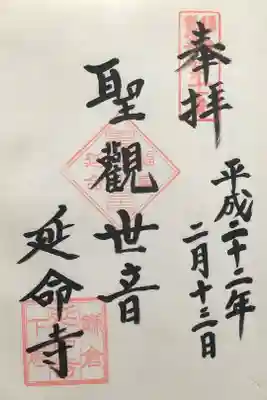 奉拝
平成二十二年
二月十三日
聖觀世音
延命寺